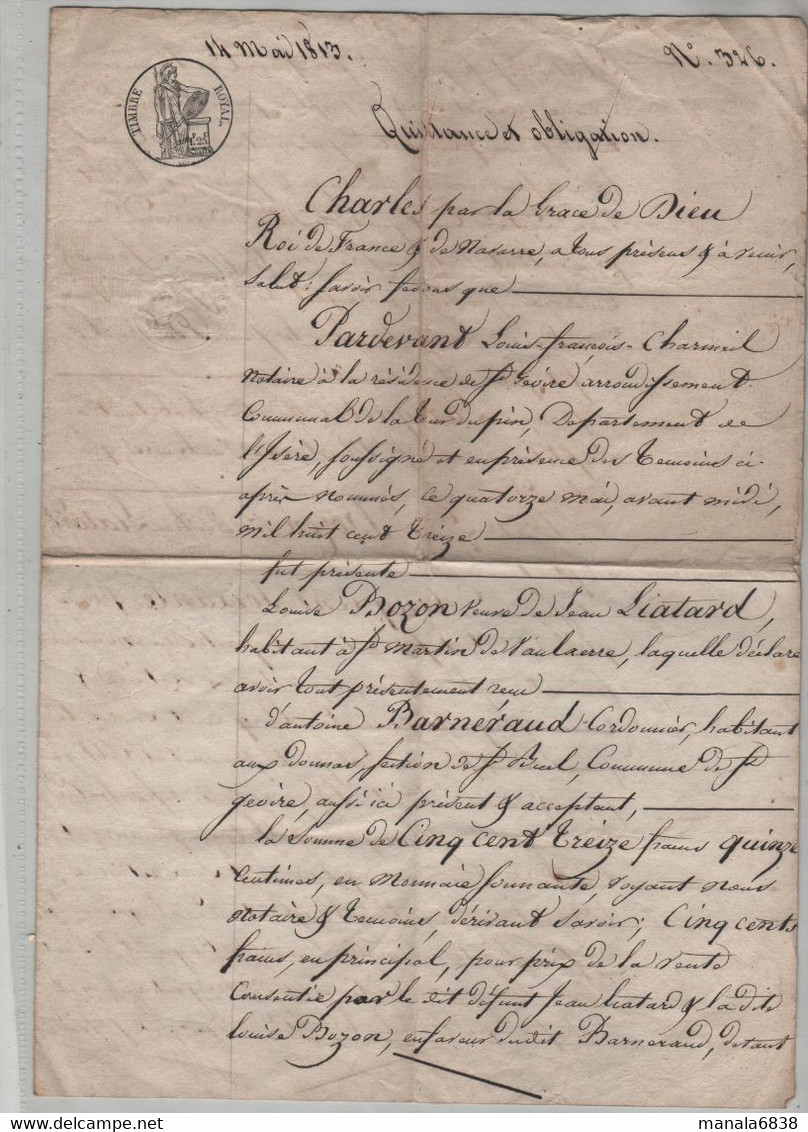 14 Mai 1813.
N.º 326.
TIMBRE ROYAL.
1F 25C
Quittance et obligation.
Charles par la Grace de Dieu
Roi de France & de Navarre, a tous présens & à venir,
Salut: savoir fesons que
Pardevant Louis-françois-Charmeil
notaire à la résidence de St Geoire arrondissement
Communal de la tour du pin, Département de
l'Isère, soussigné et en présence des temoins ci-
après nommés, ce quatorze mai, avant midi,
mil huit cent treize
fut présente
Louise Bozon veuve de Jean Liatard,
habitant à St Martin de Vaulserre, laquelle déclare
avoir tout présentement reçu
d'antoine Barnéraud Cordonnier, habitant
aux, section de St Bueil, Commune de St
geoire, aussi ici présent & acceptant,
la Somme de Cinq cent treize francs quinze
Centimes, en Monnaie sonnante, voyant nous
notaire & temoins, dérivant savoir; Cinq cents
francs, en principal, pour prix de la vente
Consentie par le dit défunt Jean Liatard & la dite
Louise Bozon, en faveur dudit Barneraud, devant
manala6838